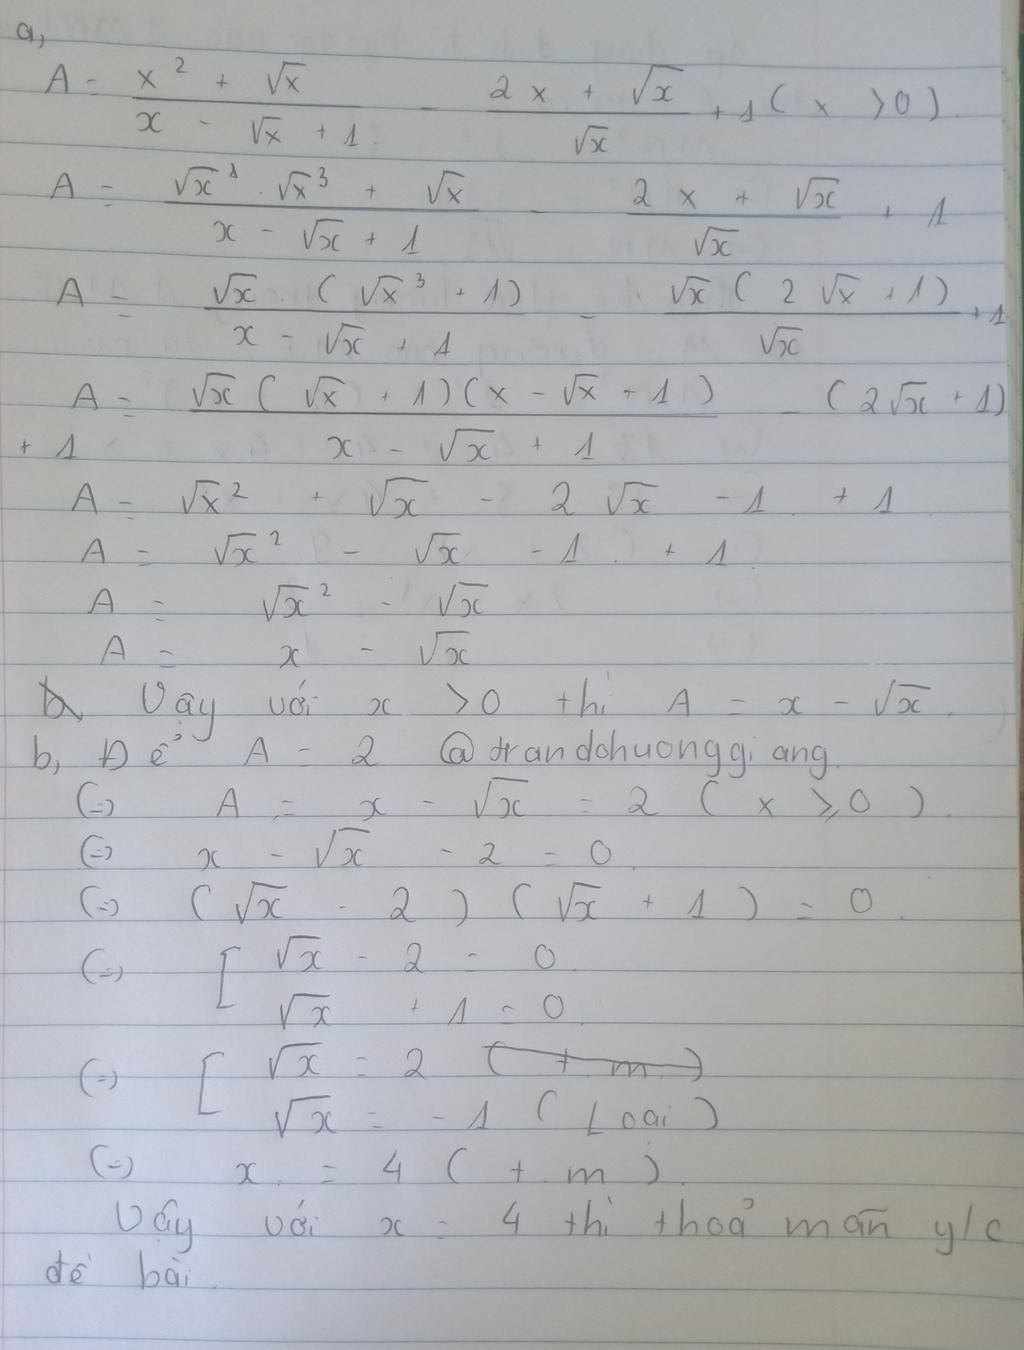 a,
A = \frac{x^2 + \sqrt{x}}{x - \sqrt{x} + 1} - \frac{2x + \sqrt{x}}{\sqrt{x}} + 1 (x > 0)
A = \frac{\sqrt{x}^1 . \sqrt{x}^3 + \sqrt{x}}{x - \sqrt{x} + 1} - \frac{2x + \sqrt{x}}{\sqrt{x}} + 1
A = \frac{\sqrt{x} . (\sqrt{x}^3 + 1)}{x - \sqrt{x} + 1} - \frac{\sqrt{x} (2\sqrt{x} + 1)}{\sqrt{x}} + 1
A = \frac{\sqrt{x} (\sqrt{x} + 1)(x - \sqrt{x} + 1)}{x - \sqrt{x} + 1} - (2\sqrt{x} + 1)
+ 1
A = \sqrt{x}^2 + \sqrt{x} - 2\sqrt{x} - 1 + 1
A = \sqrt{x}^2 - \sqrt{x} - 1 + 1
A = \sqrt{x}^2 - \sqrt{x}
A = x - \sqrt{x}
Vậy với x > 0 thì A = x - \sqrt{x}.
b, Để A = 2 @trandchuonggiang.
(=) A = x - \sqrt{x} = 2 (x ⩾ 0)
(=) x - \sqrt{x} - 2 = 0
(=) (\sqrt{x} - 2)(\sqrt{x} + 1) = 0.
(=) [ \sqrt{x} - 2 = 0
\sqrt{x} + 1 = 0
(=) [ \sqrt{x} = 2 (+m)
\sqrt{x} = -1 (Loại)
(=) x = 4 (+m)
Vậy với x = 4 thì thoả mãn y/c
đề bài.